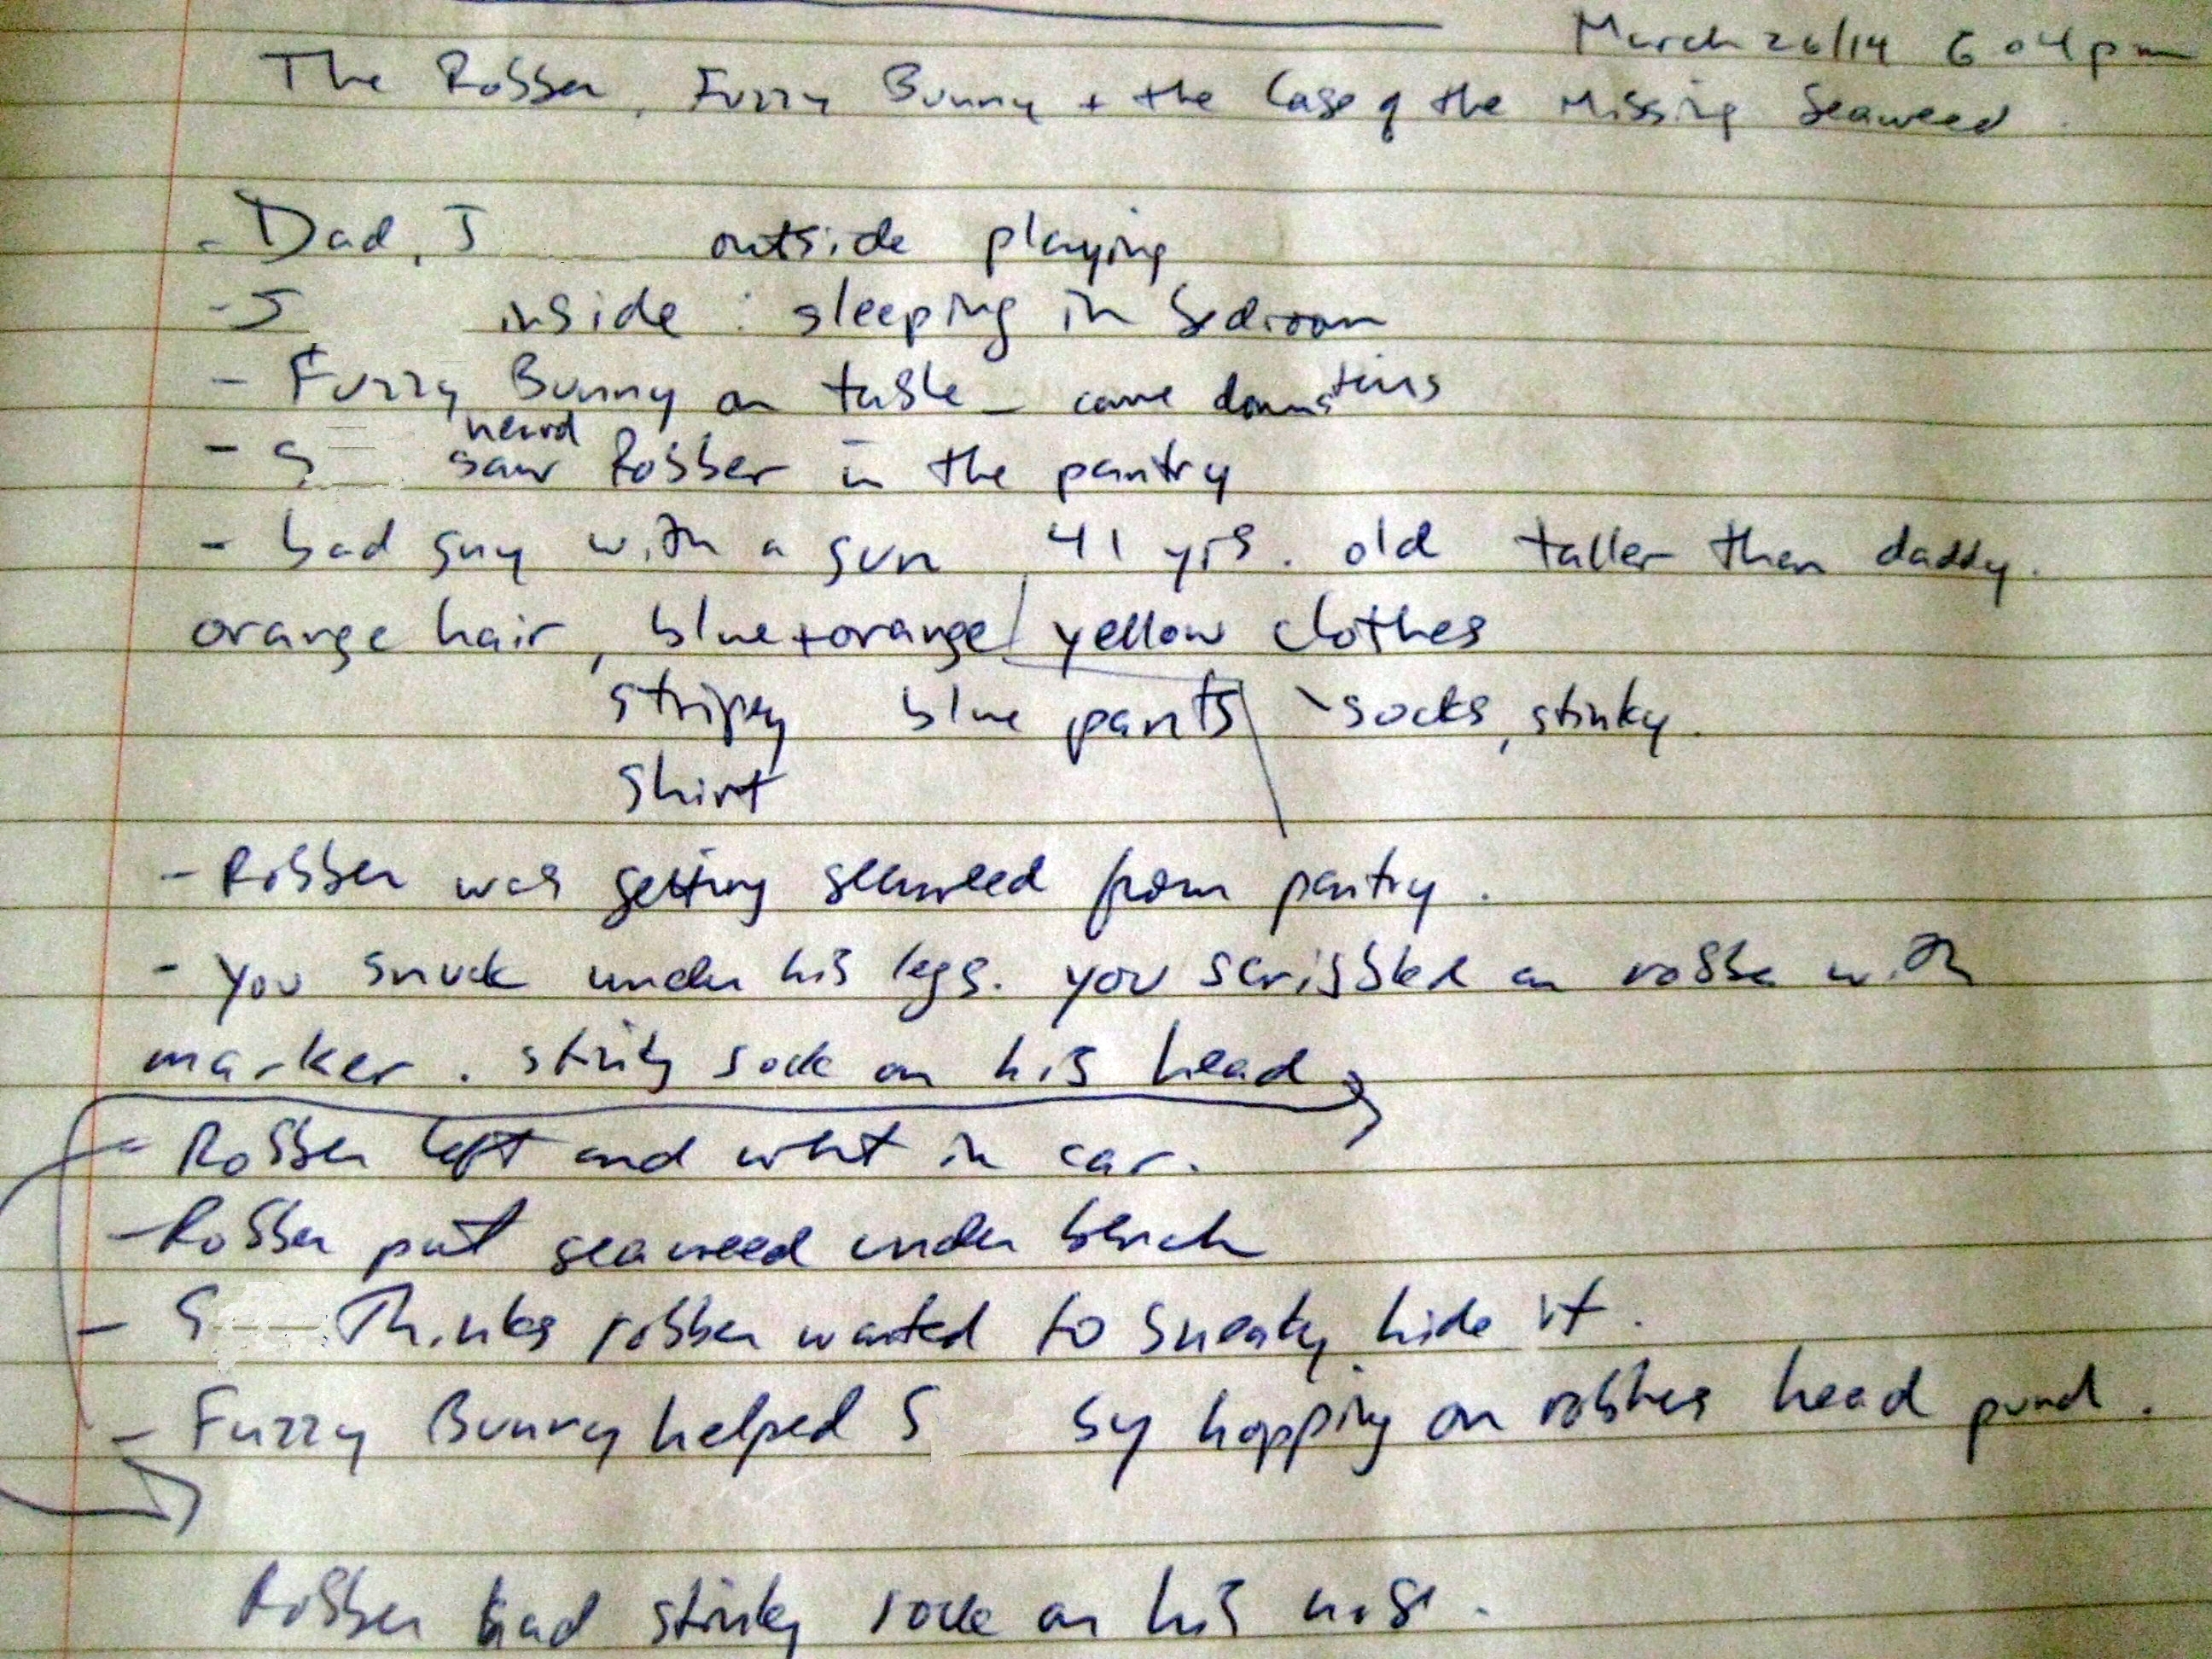 March 26/14 6:04pm
The Robber, Fuzzy Bunny + the Case of the Missing Seaweed
- Dad, J outside playing
- S inside : sleeping in bedroom
- Fuzzy Bunny on table - came downstairs
heard
- S saw Robber in the pantry
- bad guy with a gun 41 yrs. old taller than daddy.
orange hair, blue + orange yellow clothes
stripey blue pants socks, stinky.
shirt
- Robber was getting seaweed from pantry.
- You snuck under his legs. you scribbled on robber with
marker. stinky sock on his head
- Robber left and went in car.
- Robber put seaweed under bench
- S Thinks robber wanted to sneaky hide it.
- Fuzzy Bunny helped S by hopping on robbers head
Robber had stinky sock on his nose.